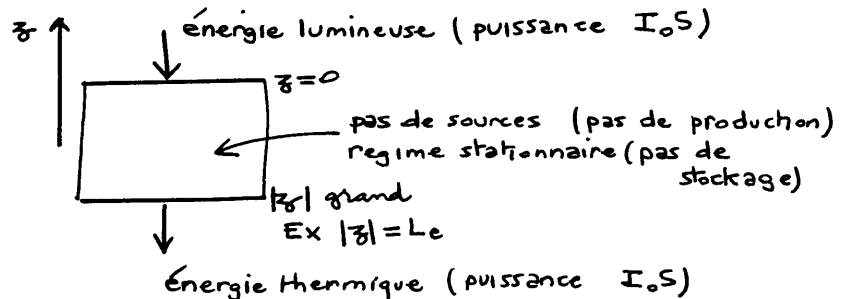 z
énergie lumineuse (puissance I₀S)
z=0
pas de sources (pas de production)
regime stationnaire (pas de
stockage)
|z| grand
Ex |z| = Le
énergie thermique (puissance I₀S)